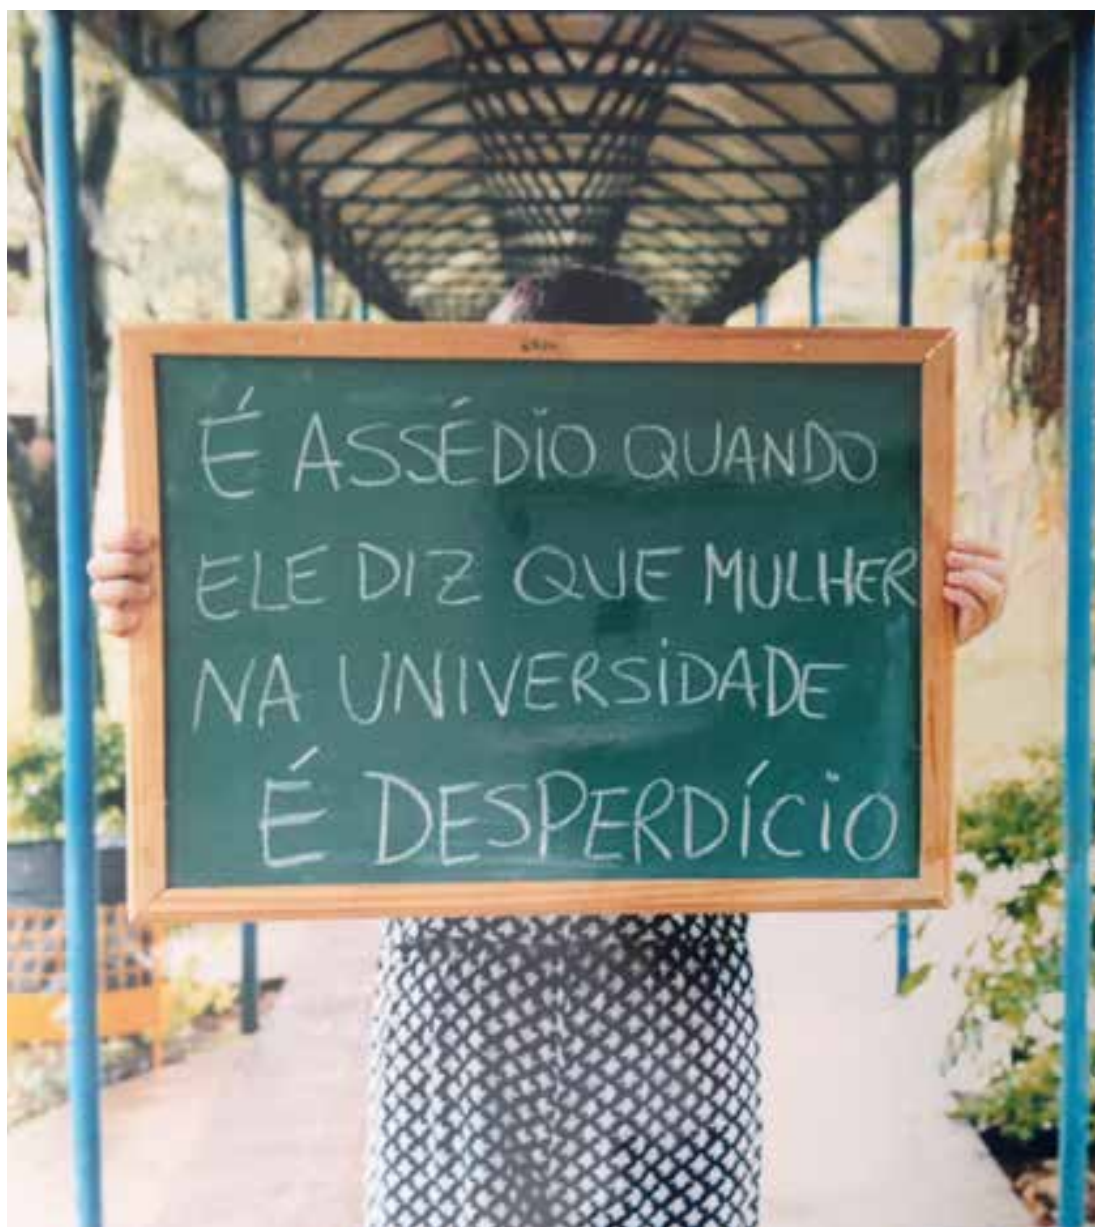 É ASSÉDIO QUANDO
ELE DIZ QUE MULHER
NA UNIVERSIDADE
É DESPERDÍCIO